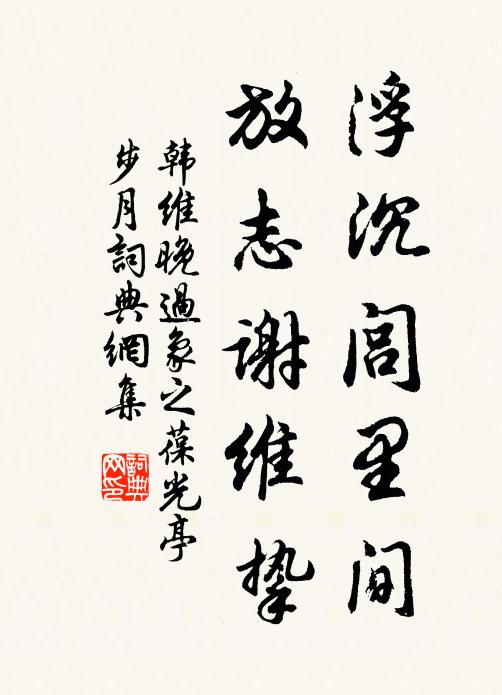 浮沉闾里间
放志谢维挚
韩维晚過象之葆光亭
步月詞典網集
詞典网印